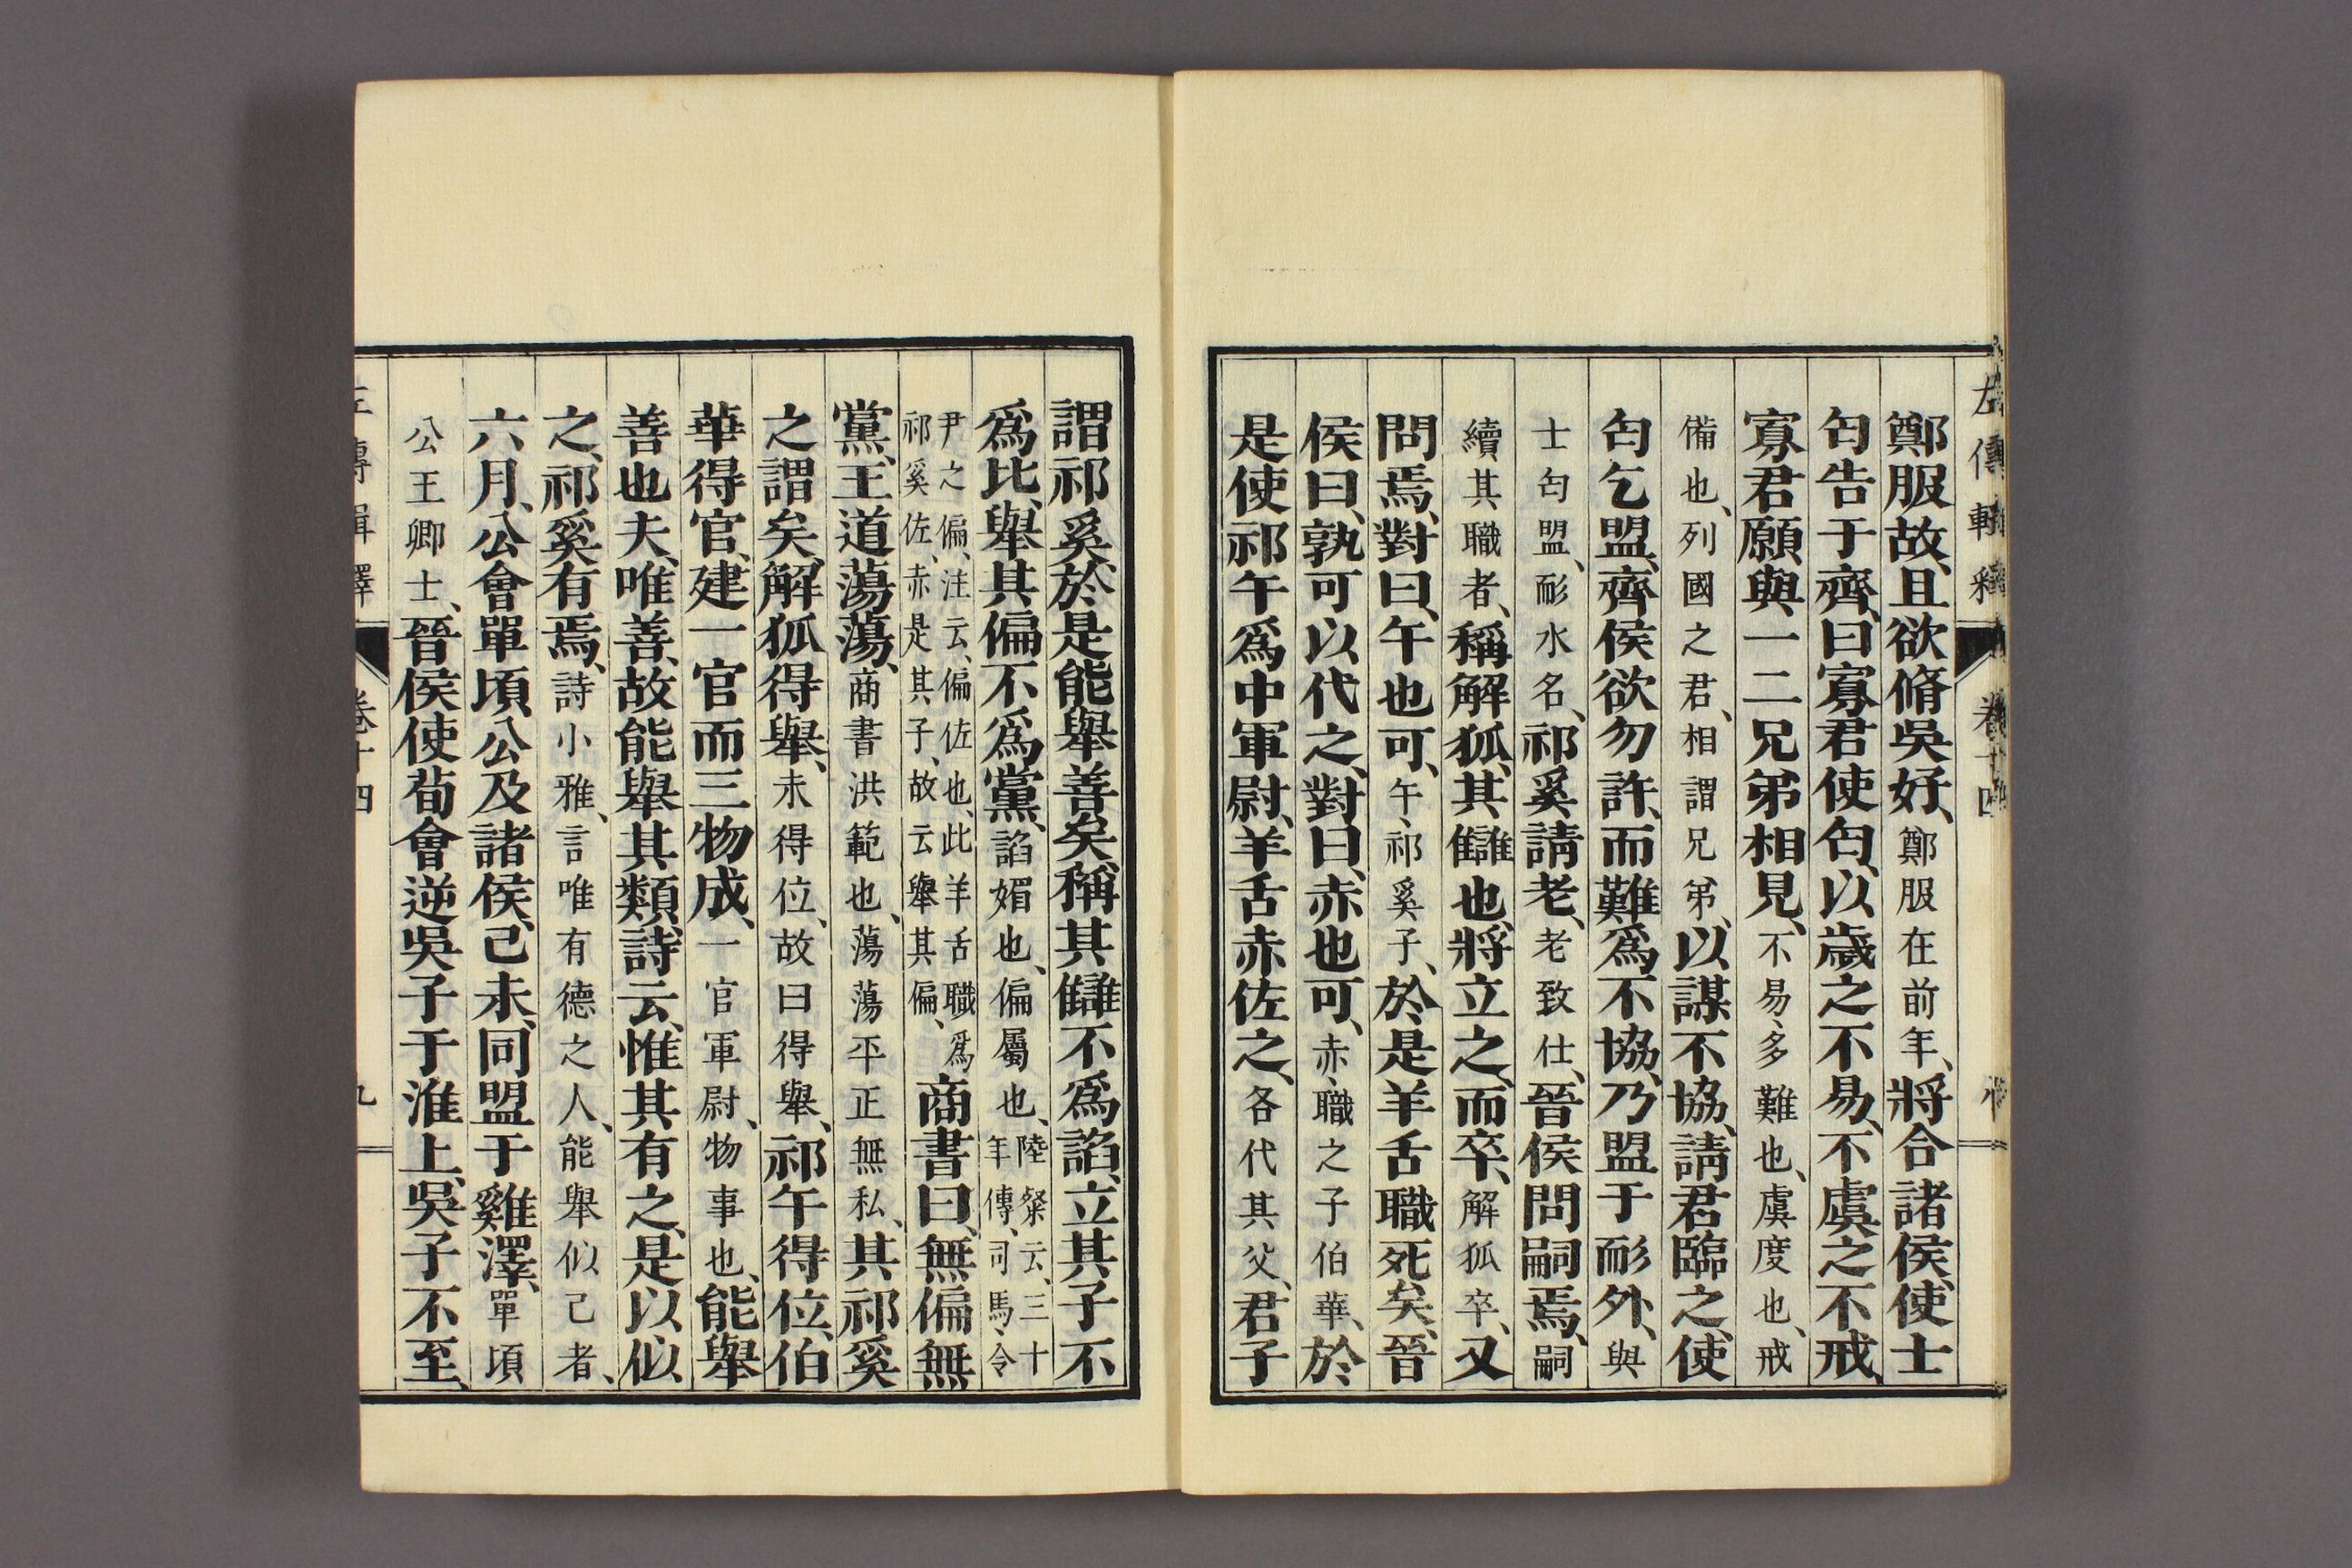 左傳輯釋 卷十四
鄭服故、且欲脩吳好、鄭服在前年、將合諸侯、使士
匄告于齊、曰寡君使匄、以歲之不易、不虞之不戒、
寡君願與一二兄弟相見、不易、多難也、虞度也、戒
備也、列國之君、相謂兄弟、以謀不協、請君臨之、使
匄乞盟、齊侯欲勿許、而難爲不協、乃盟于耏外、與
士匄盟、耏水名、祁奚請老、老致仕、晉侯問嗣焉、嗣
續其職者、稱解狐、其讎也、將立之、而卒、解狐卒、又
問焉、對曰、午也可、午、祁奚子、於是羊舌職死矣、晉
侯曰、孰可以代之、對曰、赤也可、赤、職之子伯華、於
是使祁午爲中軍尉、羊舌赤佐之、各代其父、君子
謂祁奚、於是能舉善矣、稱其讎不爲諂、立其子不
爲比、舉其偏不爲黨、諂媚也、偏屬也、陸粲云、三十
年傳、司馬、令
尹之偏、注云、偏佐也、此羊舌職爲
祁奚佐、赤是其子、故云舉其偏、商書曰、無偏無
黨、王道蕩蕩、商書洪範也、蕩蕩平正無私、其祁奚
之謂矣、解狐得舉、未得位、故曰得舉、祁午得位、伯
華得官、建一官而三物成、一官軍尉、物事也、能舉
善也夫、唯善、故能舉其類、詩云、惟其有之、是以似
之、祁奚有焉、詩小雅、言唯有德之人、能舉似己者、
六月、公會單頃公及諸侯、己未、同盟于雞澤、單頃
公王卿士、晉侯使荀會逆吳子于淮上、吳子不至、
傳輯釋 卷十四 九